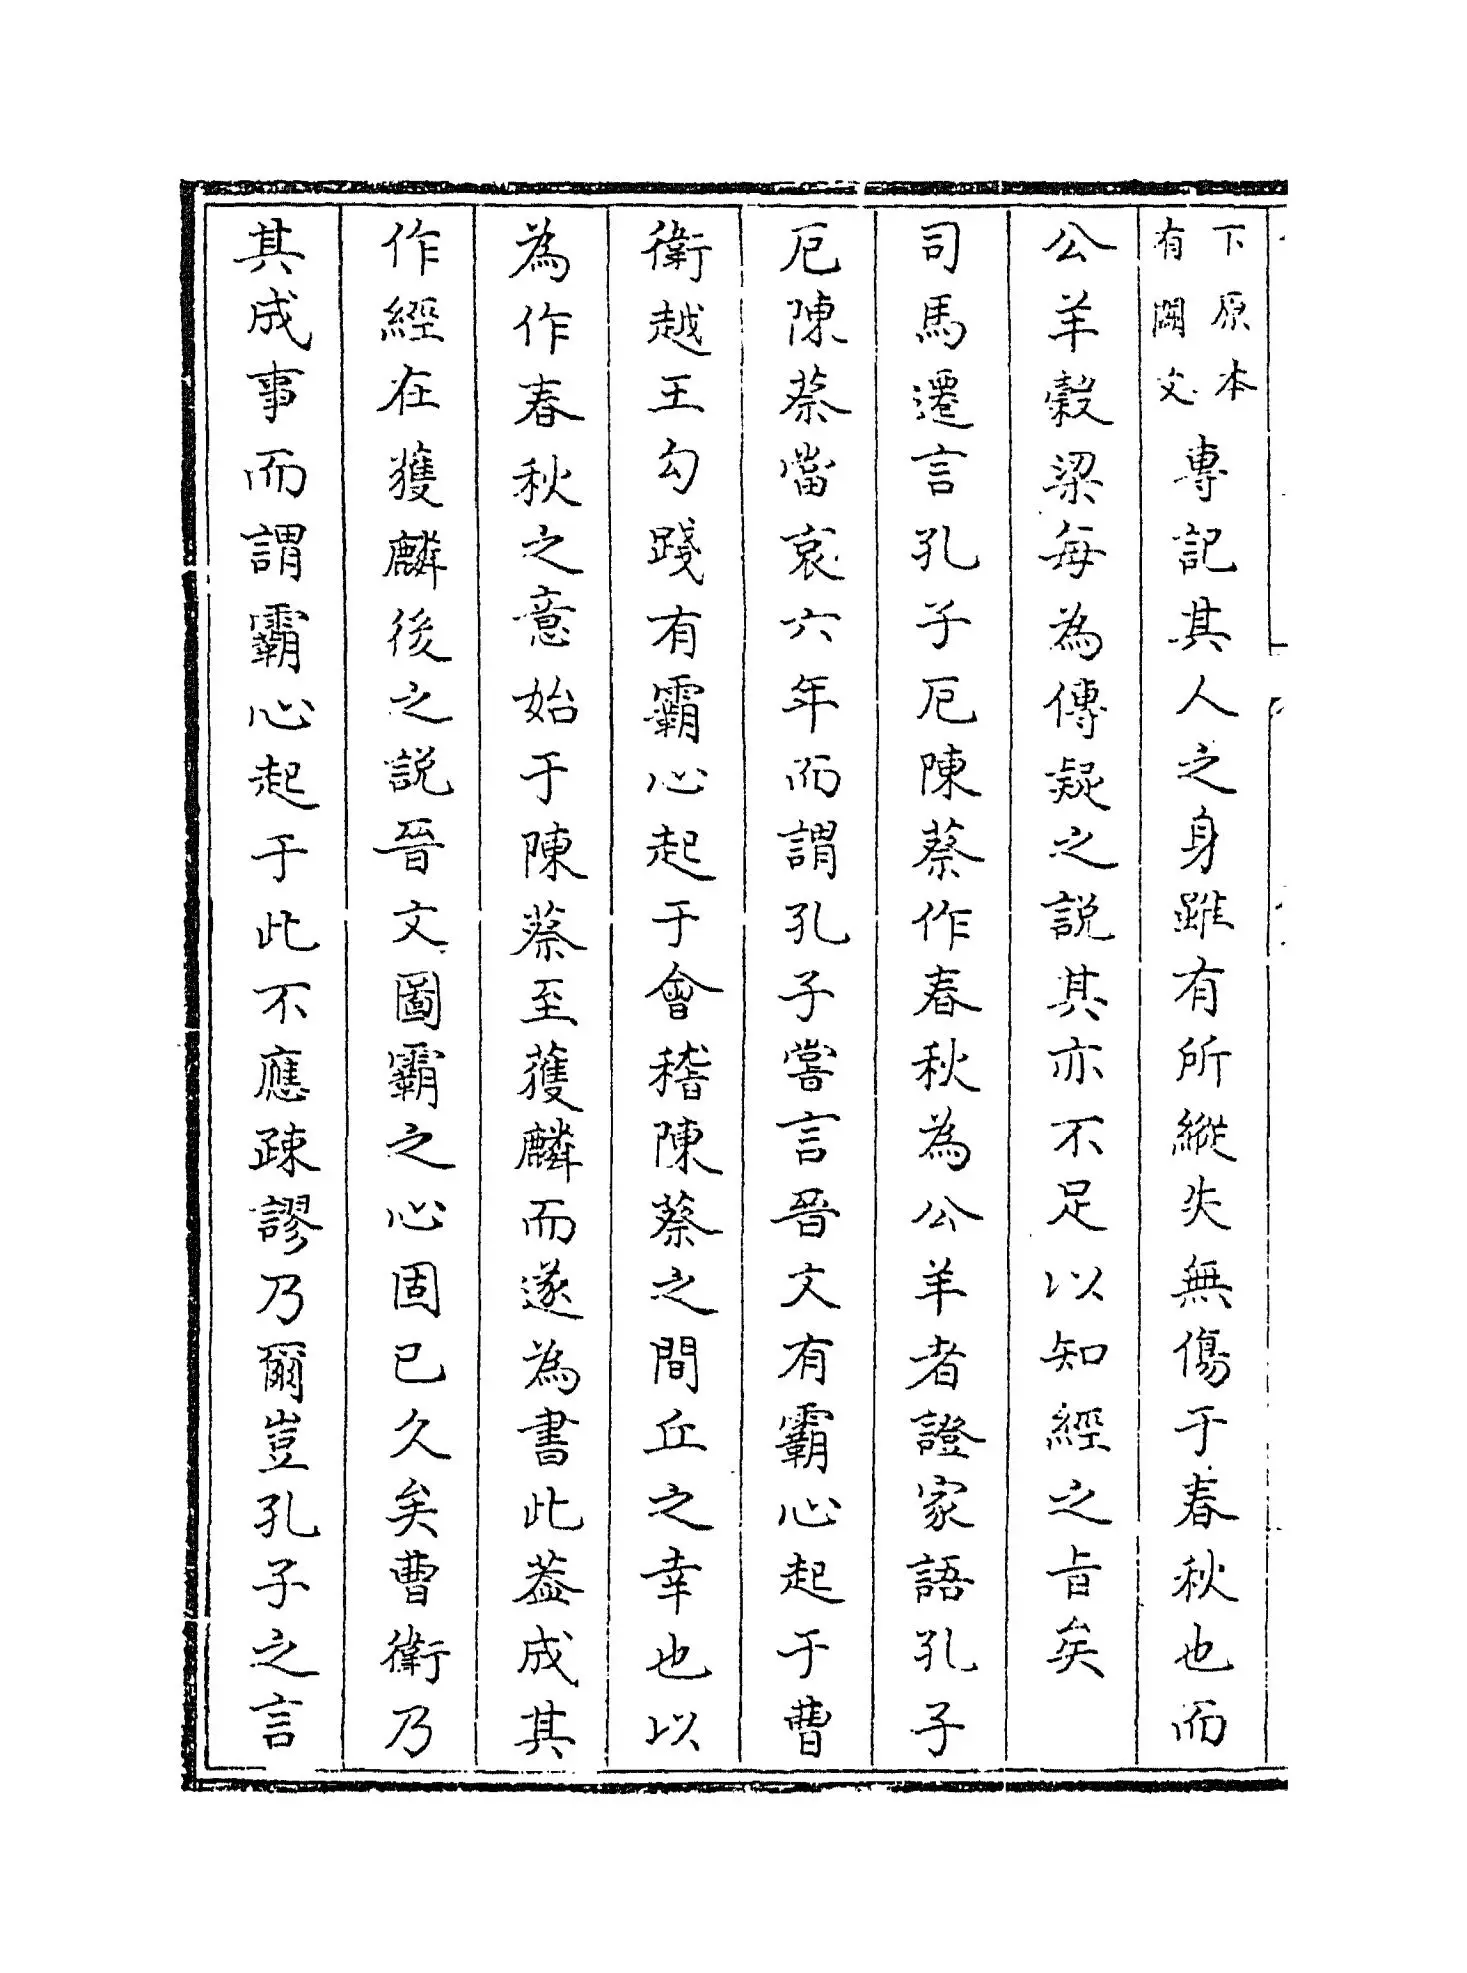 下原本有闕文專記其人之身雖有所縱失無傷于春秋也而
公羊穀梁每為傳疑之說其亦不足以知經之旨矣
司馬遷言孔子厄陳蔡作春秋為公羊者證家語孔子
厄陳蔡當哀六年而謂孔子嘗言晉文有霸心起于曹
衛越王勾踐有霸心起于會稽陳蔡之間丘之幸也以
為作春秋之意始于陳蔡至獲麟而遂為書此葢成其
作經在獲麟後之說晉文圖霸之心固已久矣曹衛乃
其成事而謂霸心起于此不應疎謬乃爾豈孔子之言